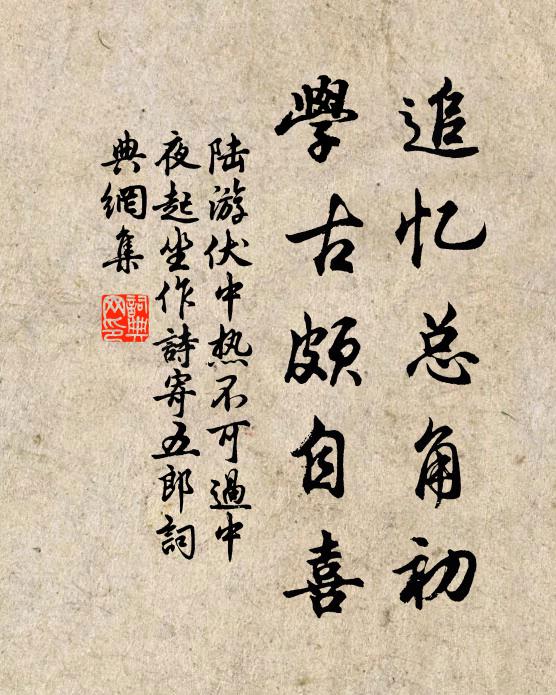 追忆总角初
學古颇自喜
陆游伏中热不可過中
夜起坐作詩寄五郎詞
典網集
詞典网印